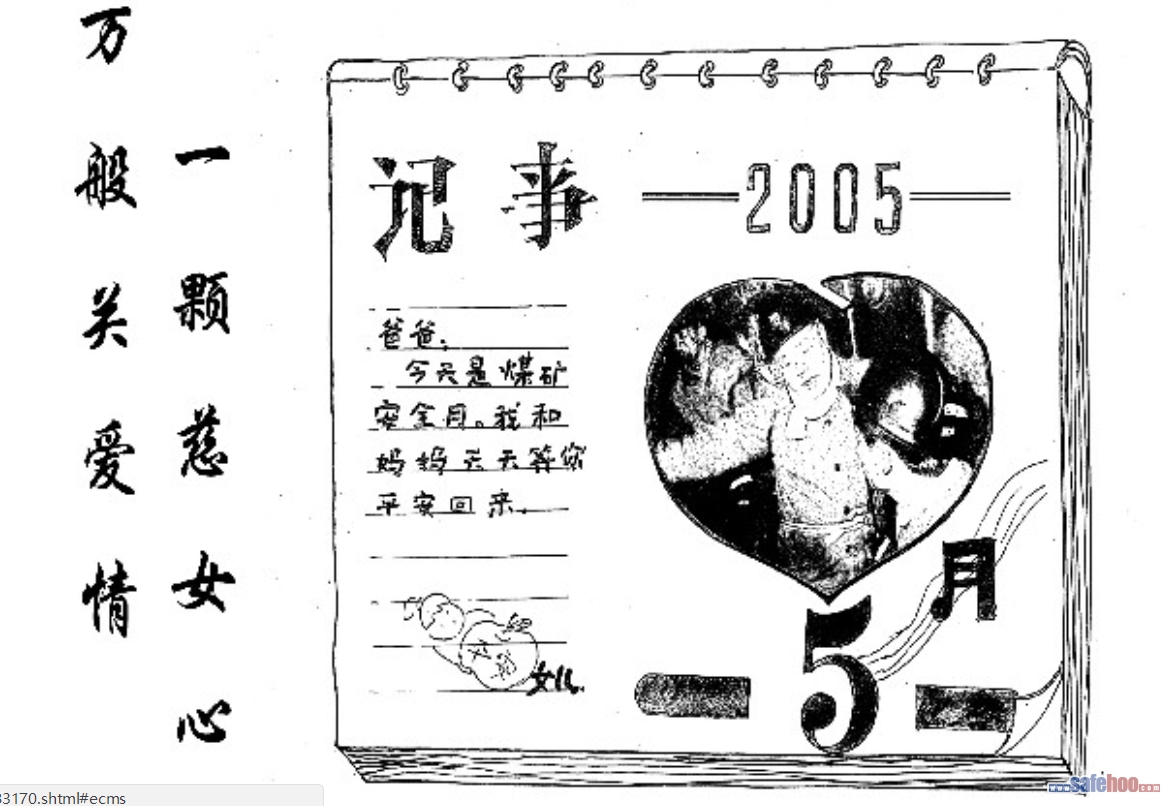 一颗慈女心
万般关爱情
记事
2005
爸爸:
今天是煤矿
安全月。我和
妈妈天天等你
平安回来。
女儿
5月
33170.shtml#ecms
www.safehoo.com